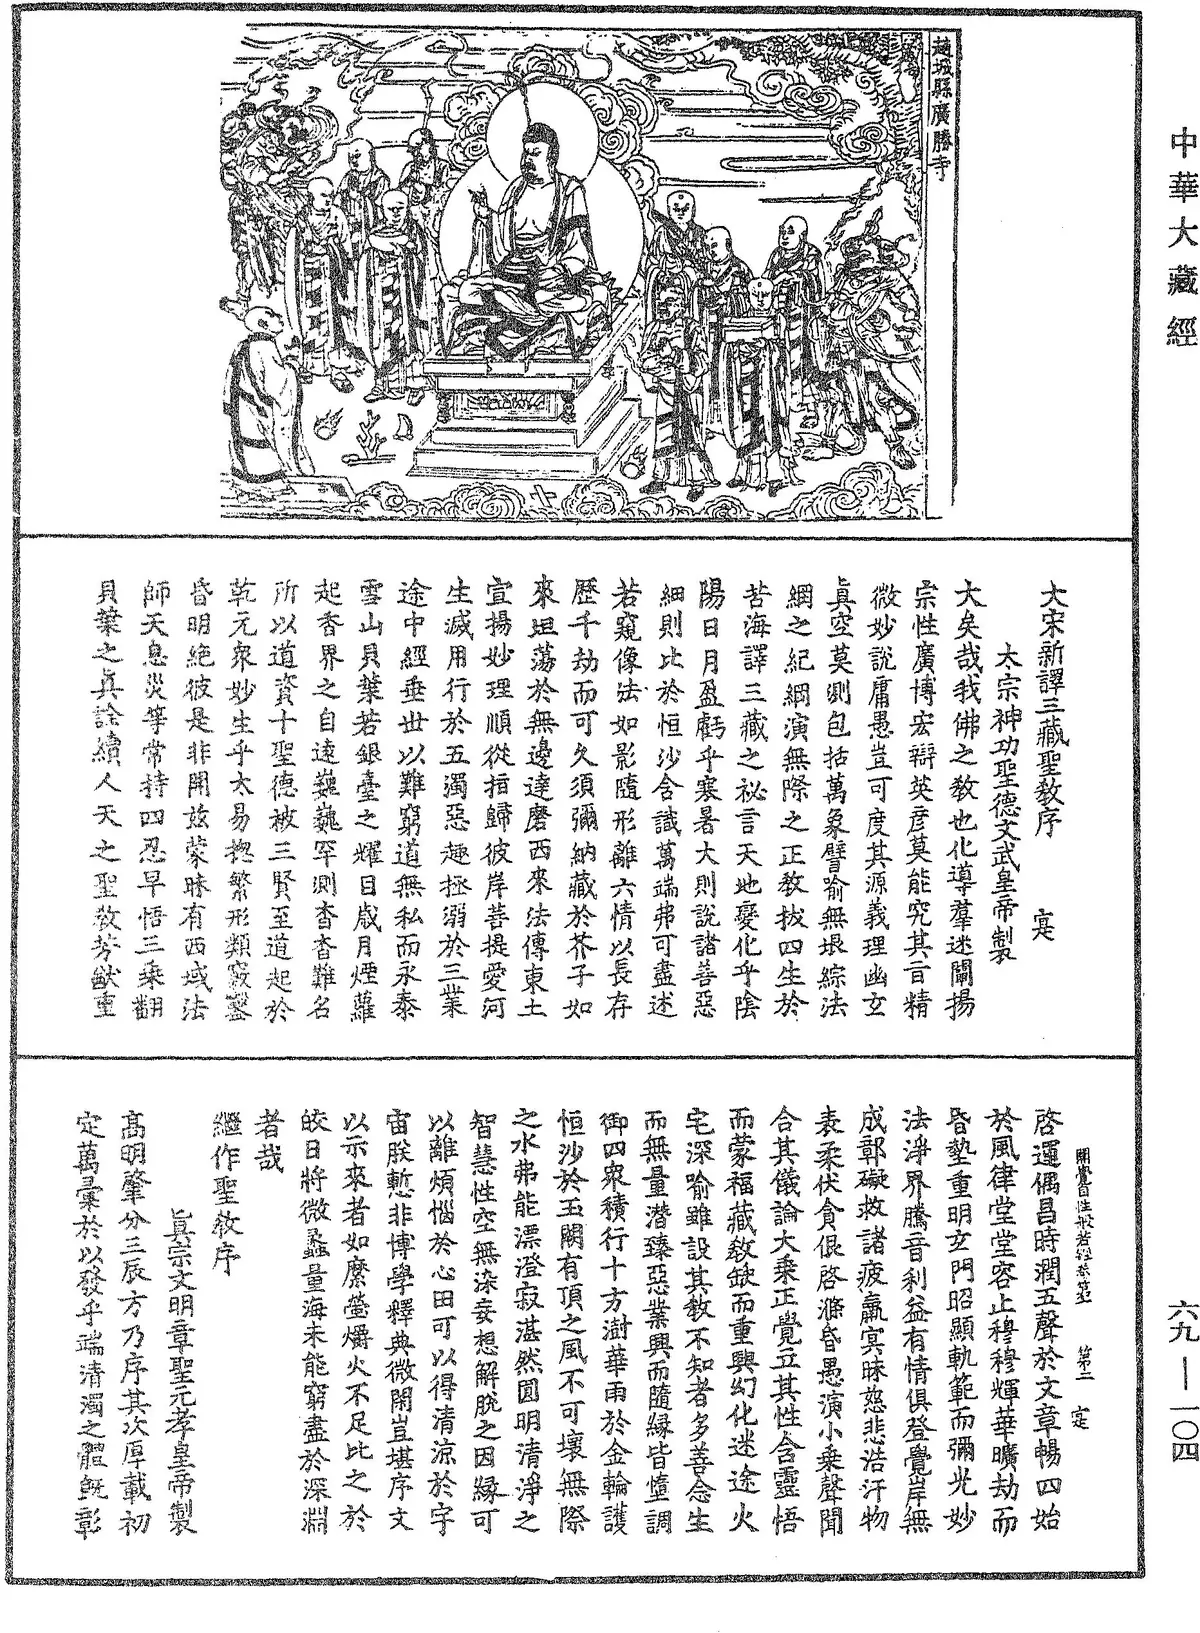 中華大藏經
趙城縣廣勝寺
大宋新譯三藏聖教序
太宗神功聖德文武皇帝製
大矣哉我佛之教也化導羣迷闡揚
宗性廣博宏辯英彦莫能究其旨精
微妙說庸愚豈可度其源義理幽玄
真空莫測包括萬象譬喻無垠綜法
網之紀綱演無際之正教拔四生於
苦海譯三藏之祕言天地變化乎陰
陽日月盈虧乎寒暑大則說諸善惡
細則比於恒沙含識萬端弗可盡述
若窺像法如影隨形離六情以長存
歷千劫而可久須彌納藏於芥子如
來坦蕩於無邊達磨西來法傳東土
宣揚妙理順從指歸彼岸菩提愛河
生滅用行於五濁惡趣拯溺於三業
途中經垂世以難窮道無私而永泰
雪山貝葉若銀臺之耀目歲月煙蘿
起香界之自遠巍巍罕測杳杳難名
所以道資十聖德被三賢至道起於
乾元衆妙生乎太易揔繁形類竅鑿
昏明絶彼是非開兹蒙昧有西域法
師天息災等常持四忍早悟三乘翻
貝葉之真詮續人天之聖教芳猷重
開覺自性般若經卷第一 第二
啓運偶昌時潤五聲於文章暢四始
於風律堂堂容止穆穆輝華曠劫而
昏墊重明玄門昭顯軌範而彌光妙
法淨界騰音利益有情俱登覺岸無
成鄣礙救諸疲羸㝠昧慈悲浩汗物
表柔伏貪佷啓滌昏愚演小乘聲聞
合其儀論大乘正覺立其性含靈悟
而蒙福藏教缺而重興幻化迷途火
宅深喻雖設其教不知者多善念生
而無量潛臻惡業興而隨緣皆墮調
御四衆積行十方澍華雨於金輪護
恒沙於玉闕有頂之風不可壞無際
之水弗能漂澄寂湛然圓明清淨之
智慧性空無染妄想解脫之因緣可
以離煩惱於心田可以得清涼於宇
宙朕慙非博學釋典微閑豈堪序文
以示來者如縻螢爝火不足比之於
皎日將微蠡量海未能窮盡於深淵
者哉
繼作聖教序
真宗文明章聖元孝皇帝製
高明肇分三辰方乃序其次厚載初
定萬彙於以發乎端清濁之體旣彰
六九—一〇四